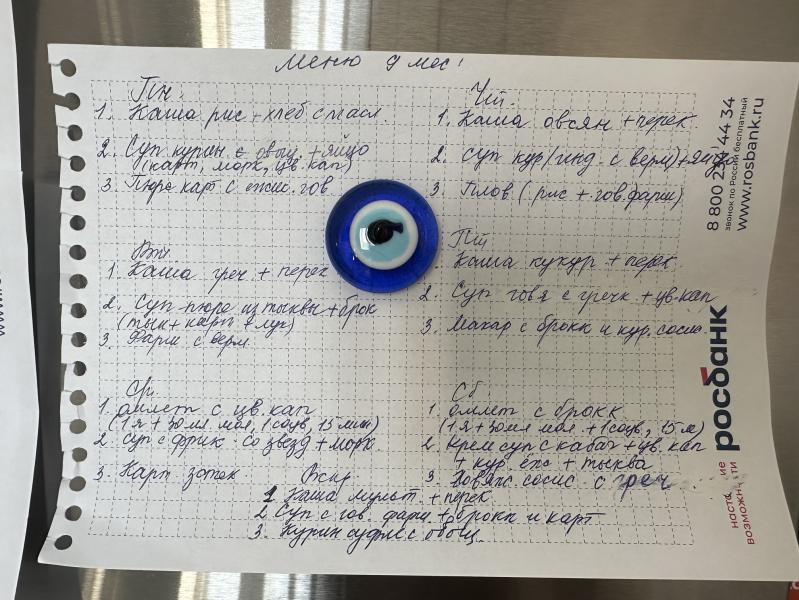 Меню 9 мес!
Пн.
1. Каша рис + хлеб с масл.
2. Суп курин с овощ + яйцо
(карт, морк, цв. кап)
3. Пюре карт с ежик. гов
Вт
1. Каша греч + перек
2. Суп-пюре из тыквы + брок
(тык + карт + лук)
3. Фарш с верм.
Ср
1. Омлет с цв. кап
(1 я + 30 мл мол, 1 соув, 15 мин)
2. Суп с фрик. со звезд + морк.
3. Карт запек
Чт.
1. Каша овсян + перек
2. Суп кур/инд. с верм) + яйцо
3. Плов (рис + гов. фарш)
Пт
Каша кукур + перек.
2. Суп говя с гречк + цв. кап
3. Макар с брокк и кур. сосис.
Сб
1. Омлет с брокк
(1 я + 30 мл мол + 1 соув, 15 м)
2. Крем суп с кабач + цв. кап
+ кур. ежс + тыква
3. Говяж сосис с греч
Вскр
1. Каша мульт. + перек
2. Суп с гов. фарш + брокк и карт
3. Курин суфле с овощ.
8 800 234 44 34
звонок по России бесплатный
www.rosbank.ru
росбанк
возможности